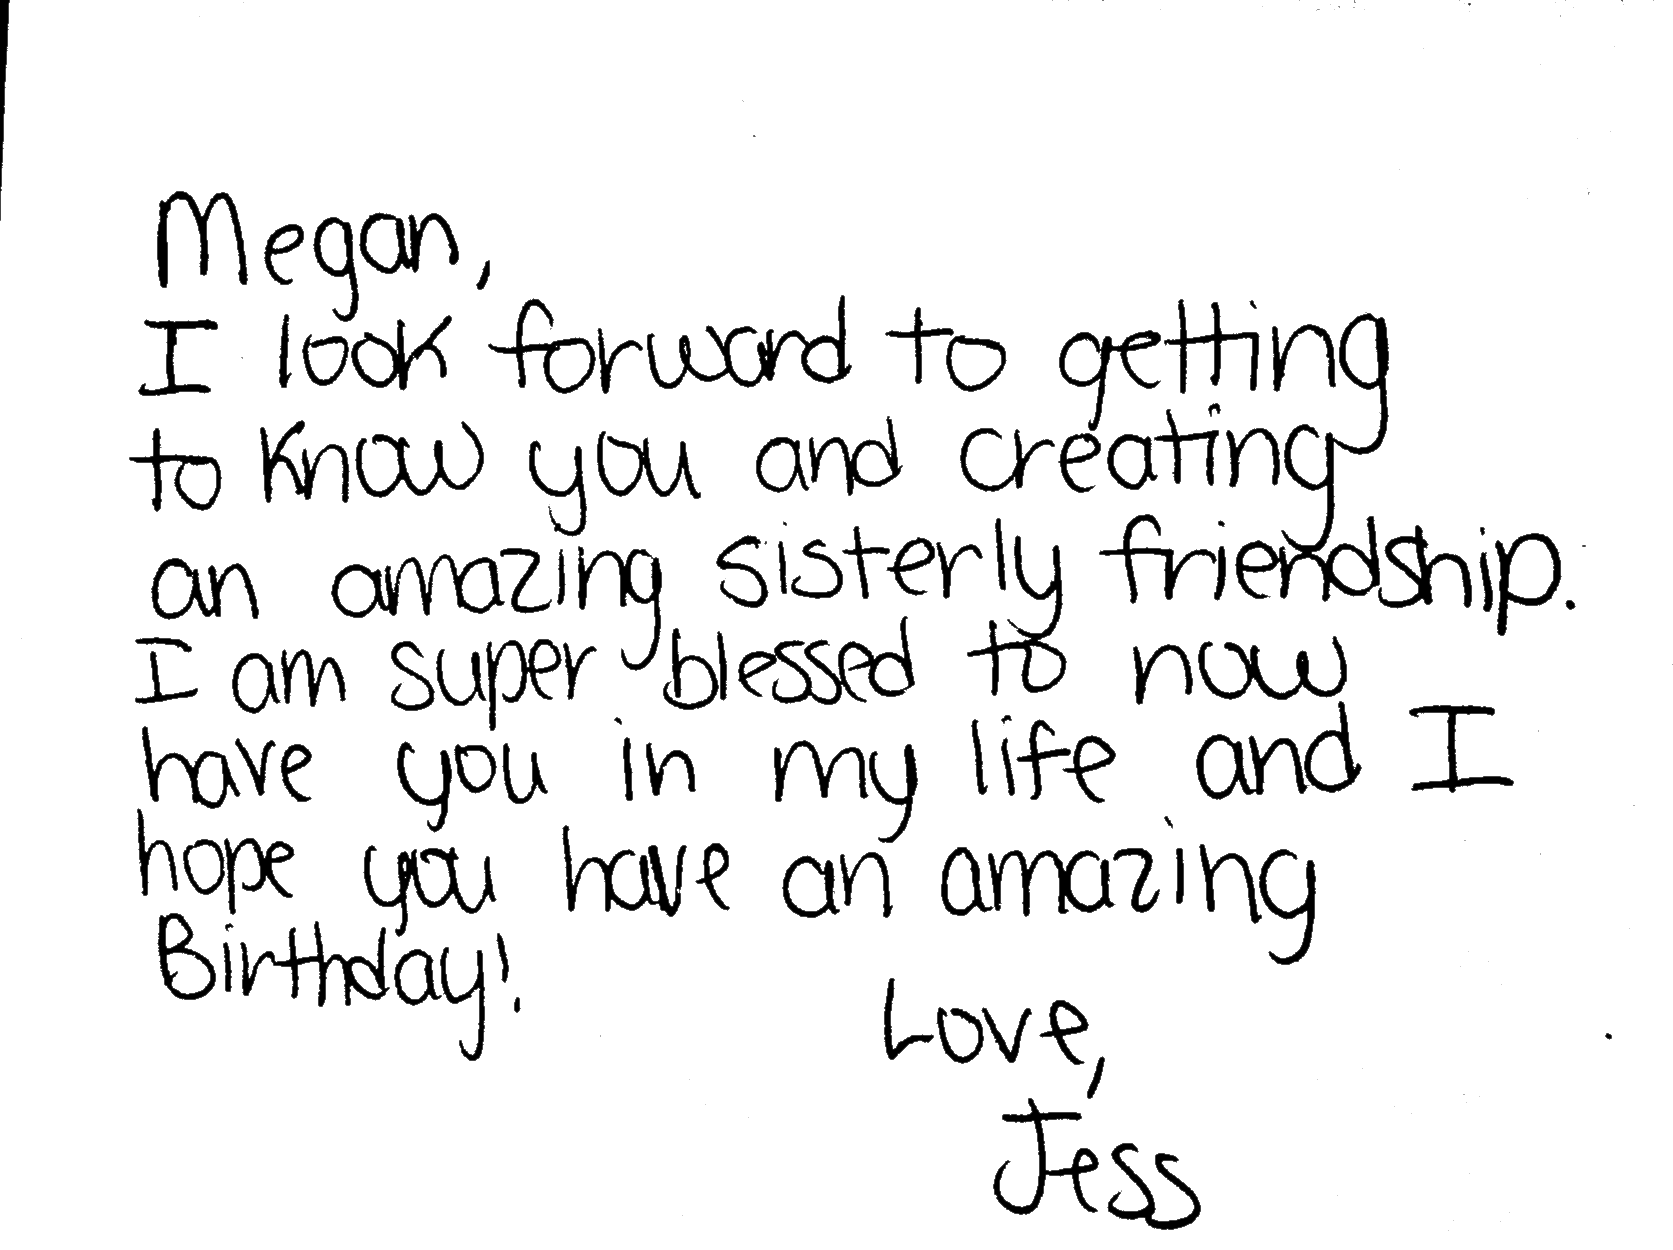 Megan,
I look forward to getting
to know you and creating
an amazing sisterly friendship.
I am super blessed to now
have you in my life and I
hope you have an amazing
Birthday!
Love,
Jess